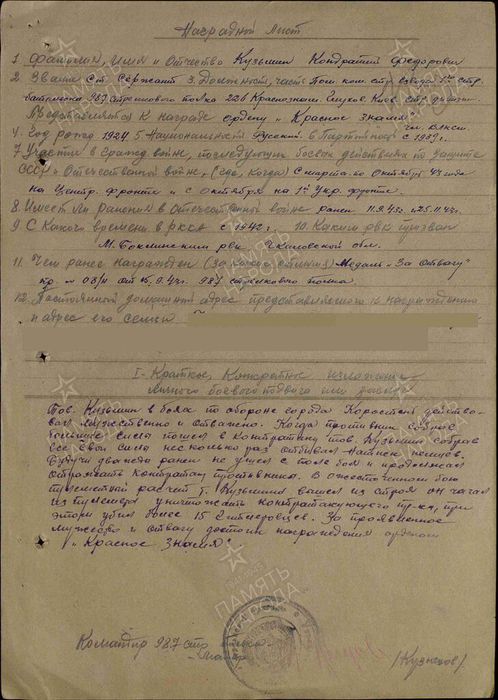 Наградной лист
1 Фамилия, Имя и Отчество Кузьмин Кондратий Федорович
2. Звание Ст. Сержант 3. Должность, часть Пом. ком. стр. взвода 1го стр.
батальона 987 стрелкового полка 226 Краснознам. Глухов. Киев. стр. дивизии.
Представляется к награде ордену „Красное знамя"
4. Год рожд 1924 5. Национальность Русский. 6. Партийность чл. ВЛКСМ
с 1939 г.
7. Участие в гражд. войне, последующих боевых действиях по защите
СССР и Отечественной войне, (где, когда) С марта по Октябрь 43 года
на Центр. фронте и с Октября на 1м Укр. фронте.
8. Имеет ли ранения в Отечественной войне ранен 11.9.43 г. 25.11.43 г.
9. С какого времени в РККА с 1942 г. 10. Каким рвк призван
М. рвк Чкаловской обл.
11. Чем ранее награжден (за какие отличия) Медаль „За Отвагу"
пр. № 08/н от 15.9.43 г. 987 стрелкового полка.
12. Постоянный домашний адрес представляемого к награждению
и адрес его семьи
I- Краткое, Конкретное изложение
личного боевого подвига или заслуг
Тов. Кузьмин в боях по обороне города Коростень действо-
вал мужественно и отважно. Когда противник собрав
большие силы пошел в контратаку тов. Кузьмин собрав
все свои силы несколько раз отбивал натиск немцев.
Будучи дважды ранен не ушел с поля боя и продолжал
отражать контратаки противника. В ожесточенном бою
пулеметный расчет т. Кузьмина вышел из строя он начал
из пулемета уничтожать контратакующего пр-ка, при
этом убил более 15 гитлеровцев. За проявленное
мужество и отвагу достоин награждения орденом
„Красное знамя"
Командир 987 стр. полка
майор (Кузнецов)
ПАМЯТЬ
НАРОДА
ПАМЯТЬ
НАРОДА